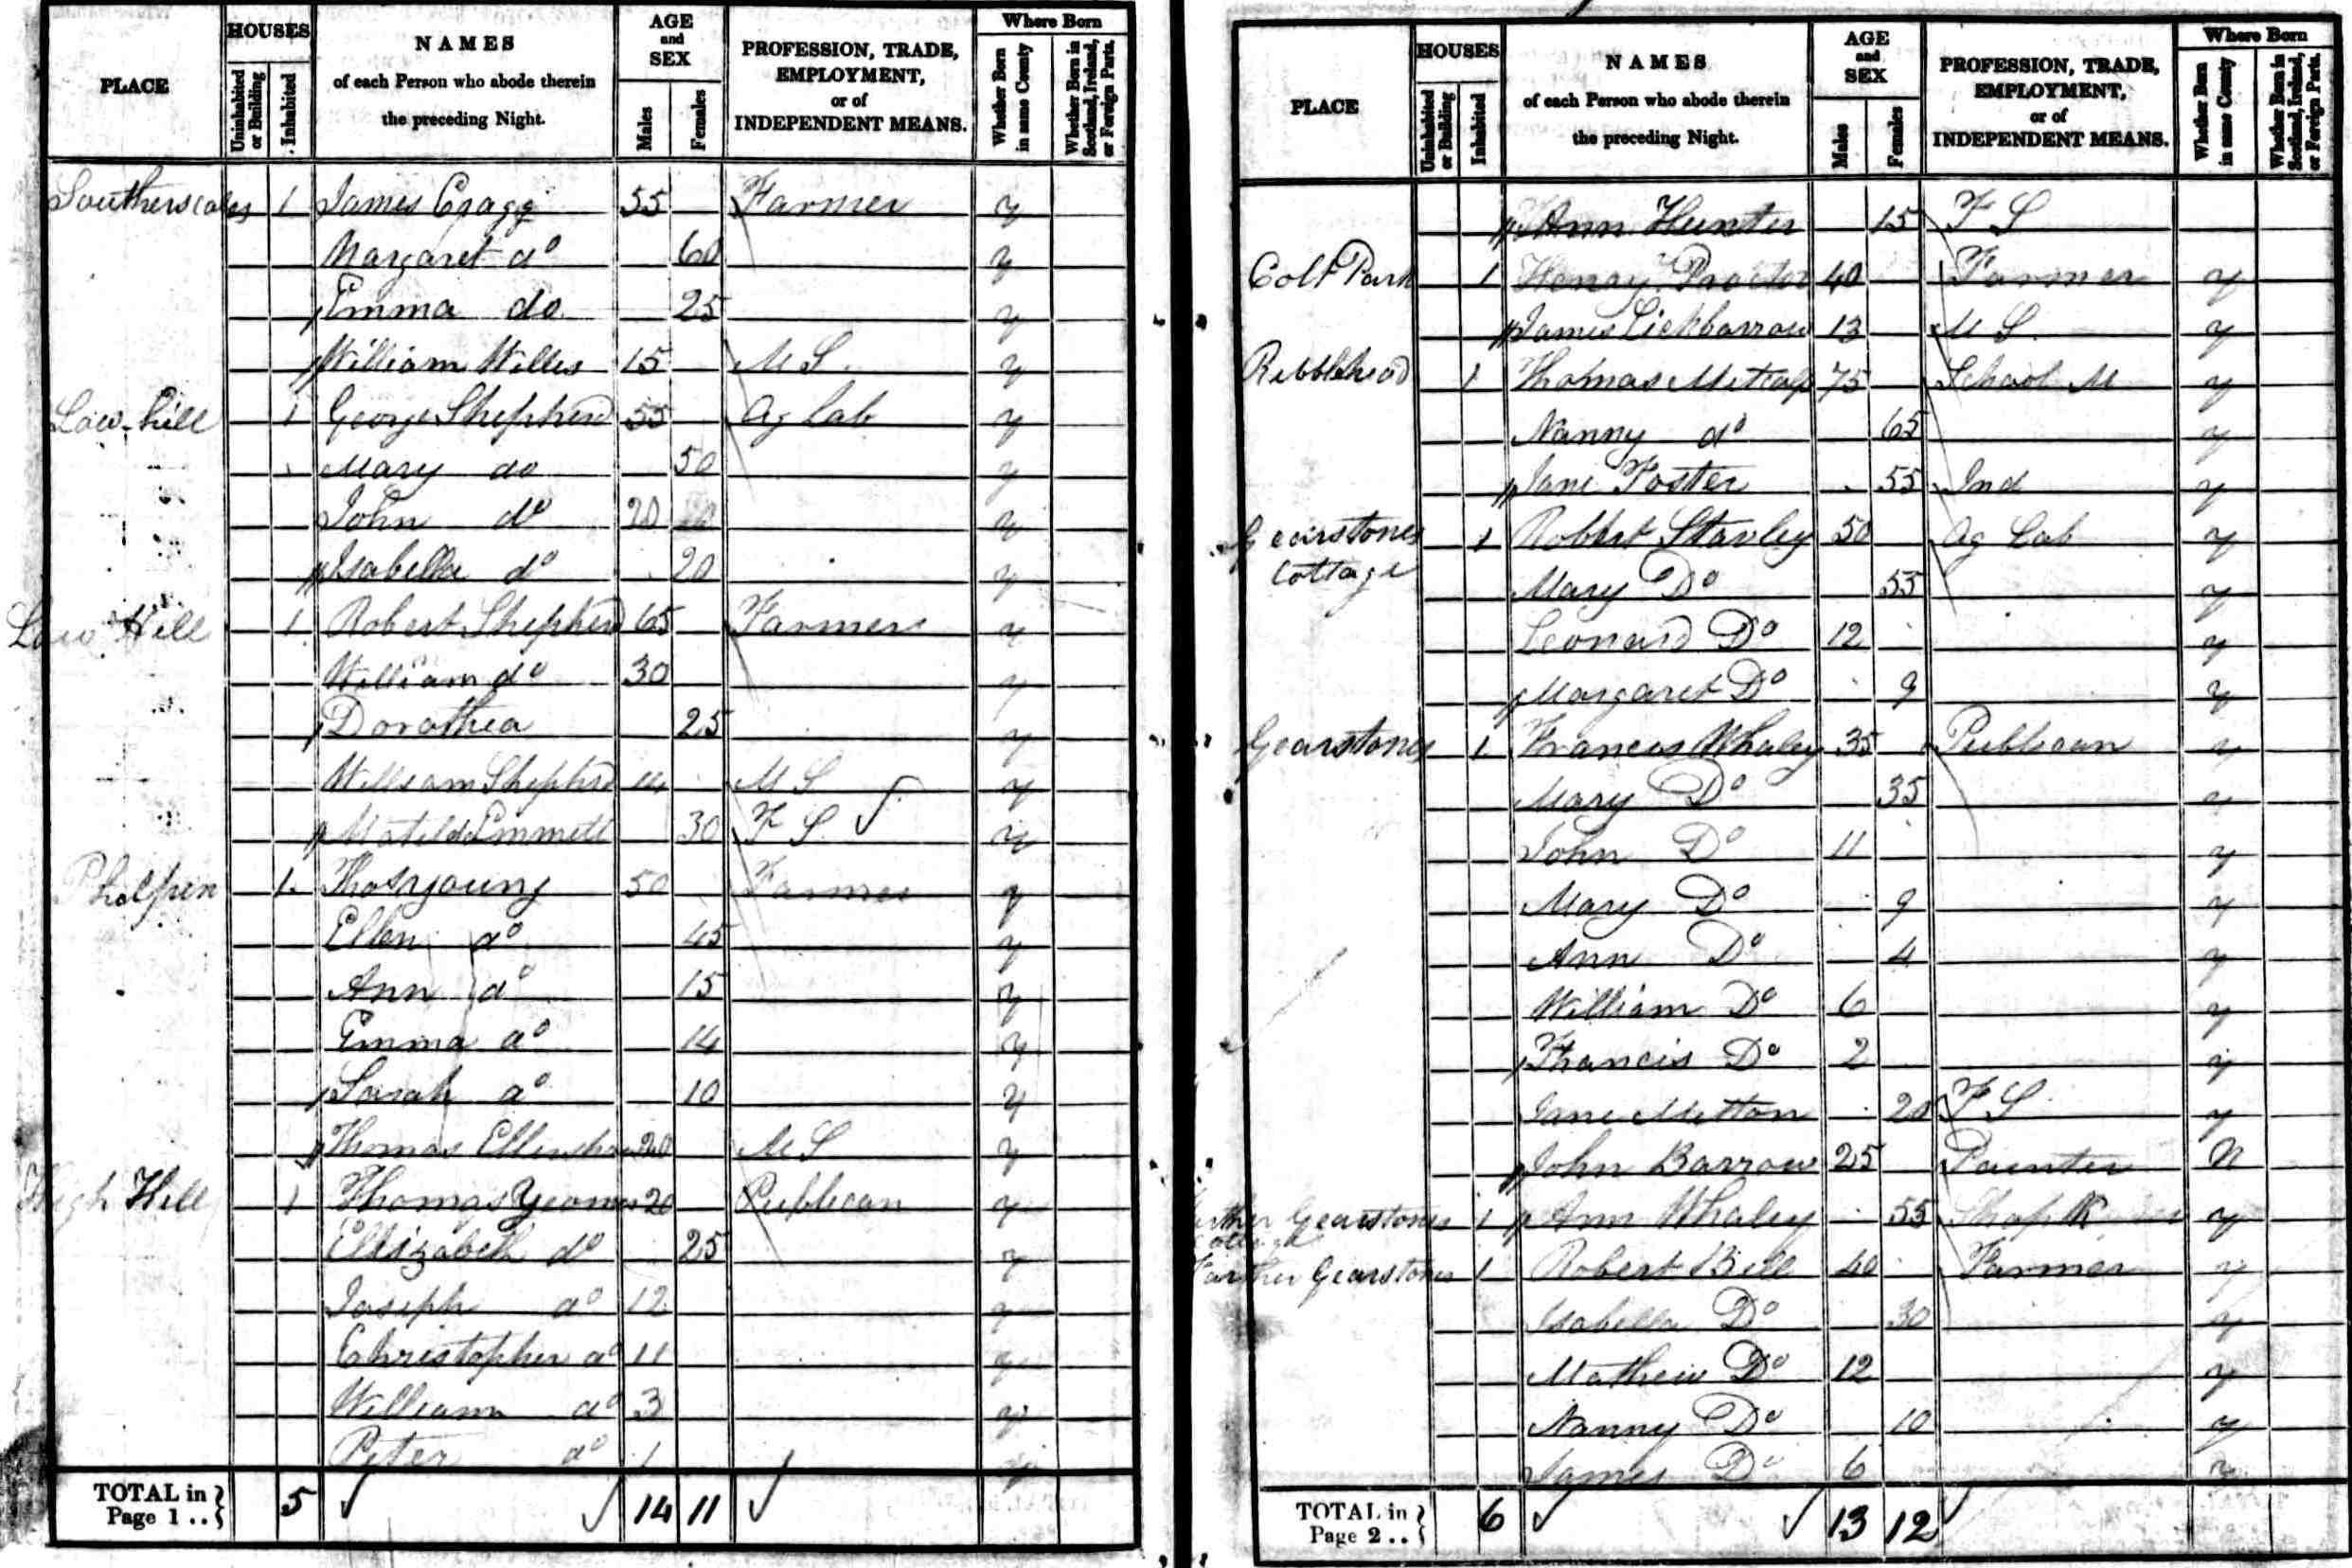 PLACE HOUSES Uninhabited or Building Inhabited NAMES of each Person who abode therein the preceding Night. AGE and SEX Males Females PROFESSION, TRADE, EMPLOYMENT, or of INDEPENDENT MEANS. Where Born Whether Born in same County Whether Born in Scotland, Ireland, or Foreign Parts.
Southerscales 1 James Cragg 55 Farmer y
Margaret do 60 y
Emma do 25 y
William Willis 15 M S. y
Low hill 1 George Shepherd 55 Ag Lab y
Mary do 50 y
John do 20 y
Isabella do 20 y
Low Hill 1 Robert Shepherd 65 Farmer y
William do 30 y
Dorothea 25 y
William Shepherd 14 M S y
Matilda Emmett 30 F S. y
1 Thos young 50 Farmer y
Ellen do 45 y
Ann do 15 y
Emma do 14 y
Sarah do 10 y
Thomas 20 M S y
High Hill 1 Thomas Yeomans 20 Publican y
Ellizabeth do 25 y
Joseph do 12 y
Christopher do 11 y
William do 3 y
Peter do 1 y
TOTAL in Page 1 .. 5 14 11
PLACE HOUSES Uninhabited or Building Inhabited NAMES of each Person who abode therein the preceding Night. AGE and SEX Males Females PROFESSION, TRADE, EMPLOYMENT, or of INDEPENDENT MEANS. Where Born Whether Born in same County Whether Born in Scotland, Ireland, or Foreign Parts.
Ann Hunter 15 F S
Colt Park 1 Henry Proctor 40 Farmer y
James Lickbarrow 13 M S. y
Ribblehead 1 Thomas Metcalf 75 School M y
Nanny do 65 y
Jane Foster 55 Ind y
Gearstones 1 Robert Stavley 50 Ag Lab y
Cottage Mary Do 55 y
Leonard Do 12 y
Margaret Do 9 y
Gearstones 1 Francis Whaley 35 Publican y
Mary Do 35 y
John Do 11 y
Mary Do 9 y
Ann Do 4 y
William Do 6 y
Francis Do 2 y
Jane Metton 20 F S y
John Barrow 25 Painter N
Farther Gearstones 1 Ann Whaley 55 Shop K y
Cottage
Farther Gearstones 1 Robert Bell 40 Farmer y
Isabella Do 30 y
Mathew Do 12 y
Nanny Do 10 y
James Do 6 y
TOTAL in Page 2 .. 6 13 12